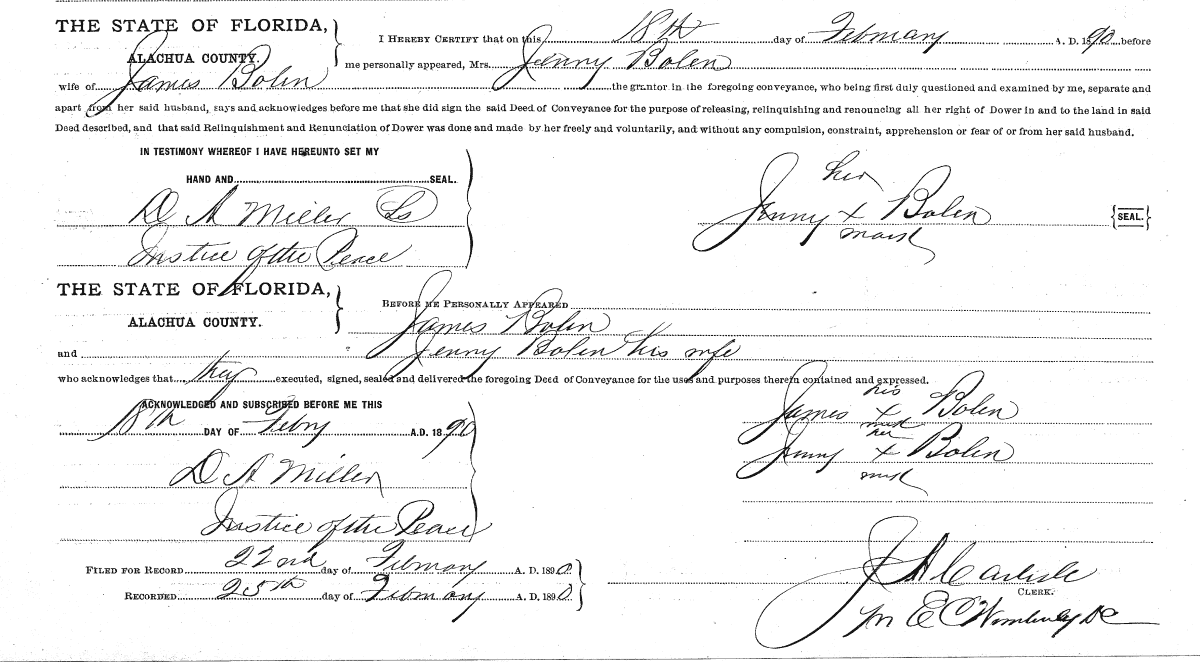 THE STATE OF FLORIDA,
ALACHUA COUNTY.
I HEREBY CERTIFY that on this 18th day of February A. D. 1890, before
me personally appeared, Mrs. Jenny Bolen
wife of James Bolen the grantor in the foregoing conveyance, who being first duly questioned and examined by me, separate and
apart from her said husband, says and acknowledges before me that she did sign the said Deed of Conveyance for the purpose of releasing, relinquishing and renouncing all her right of Dower in and to the land in said
Deed described, and that said Relinquishment and Renunciation of Dower was done and made by her freely and voluntarily, and without any compulsion, constraint, apprehension or fear of or from her said husband.
IN TESTIMONY WHEREOF I HAVE HEREUNTO SET MY
HAND AND SEAL.
D A Miller Ls
Justice of the Peace
her
Jenny x Bolen {SEAL.}
mark
THE STATE OF FLORIDA,
ALACHUA COUNTY.
BEFORE ME PERSONALLY APPEARED
James Bolen
and Jenny Bolen his wife
who acknowledges that they executed, signed, sealed and delivered the foregoing Deed of Conveyance for the uses and purposes therein contained and expressed.
ACKNOWLEDGED AND SUBSCRIBED BEFORE ME THIS
18th DAY OF Febry A.D. 1890
D A Miller
Justice of the Peace
his
James x Bolen
mark
her
Jenny x Bolen
mark
FILED FOR RECORD 22nd day of February A. D. 1890
RECORDED 25th day of February A. D. 1890
J A Carlisle
CLERK.
Pr E C Wimberly DC